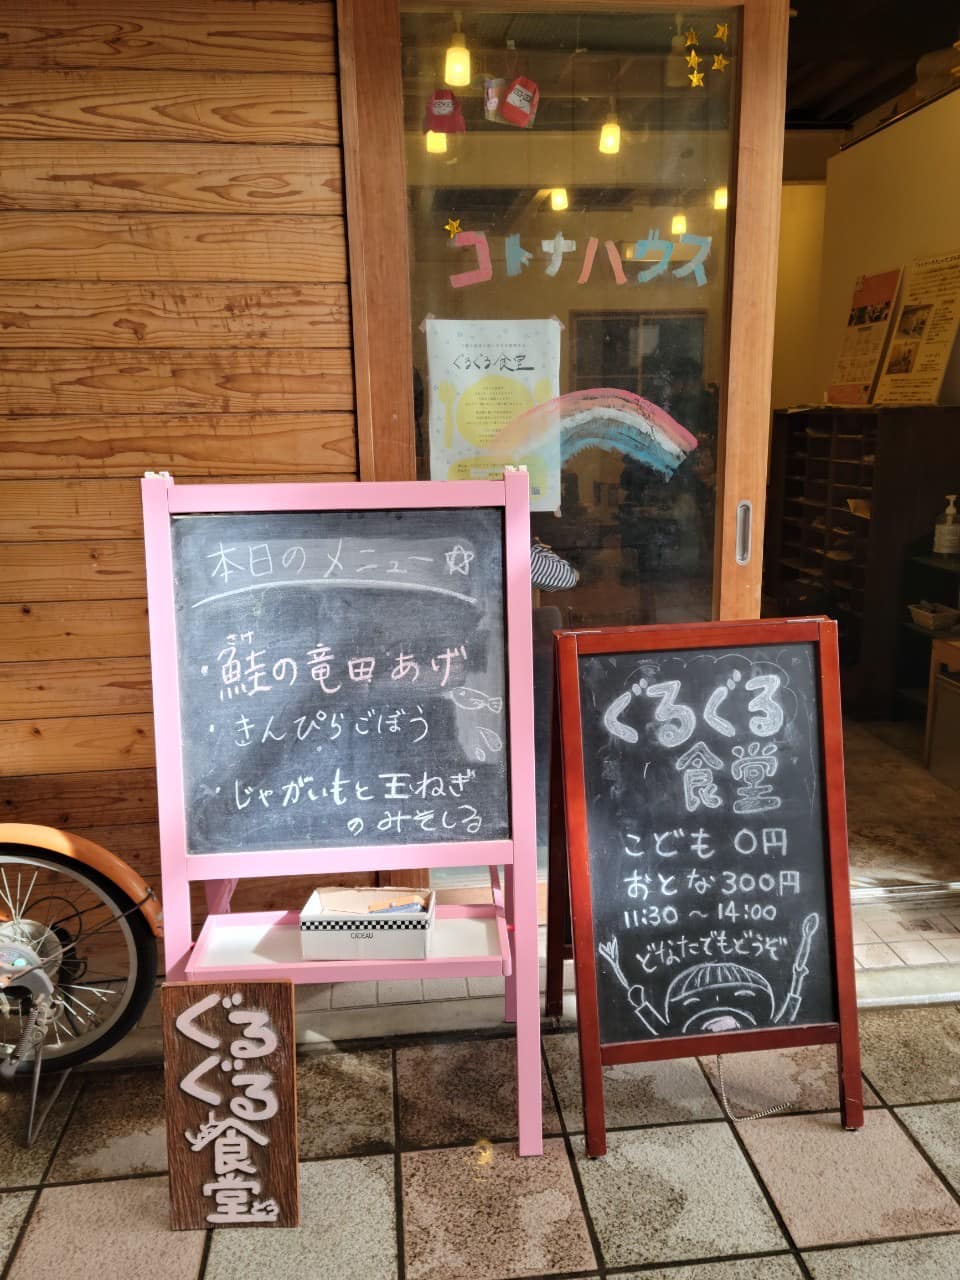 コトナハウス
ぐるぐる食堂
本日のメニュー☆
さけ
・鮭の竜田あげ
・きんぴらごぼう
・じゃがいもと玉ねぎ
のみそしる
CADEAU
ぐるぐる
食堂
こども 0円
おとな300円
11:30 〜 14:00
どなたでもどうぞ
ぐる
ぐる
食
堂